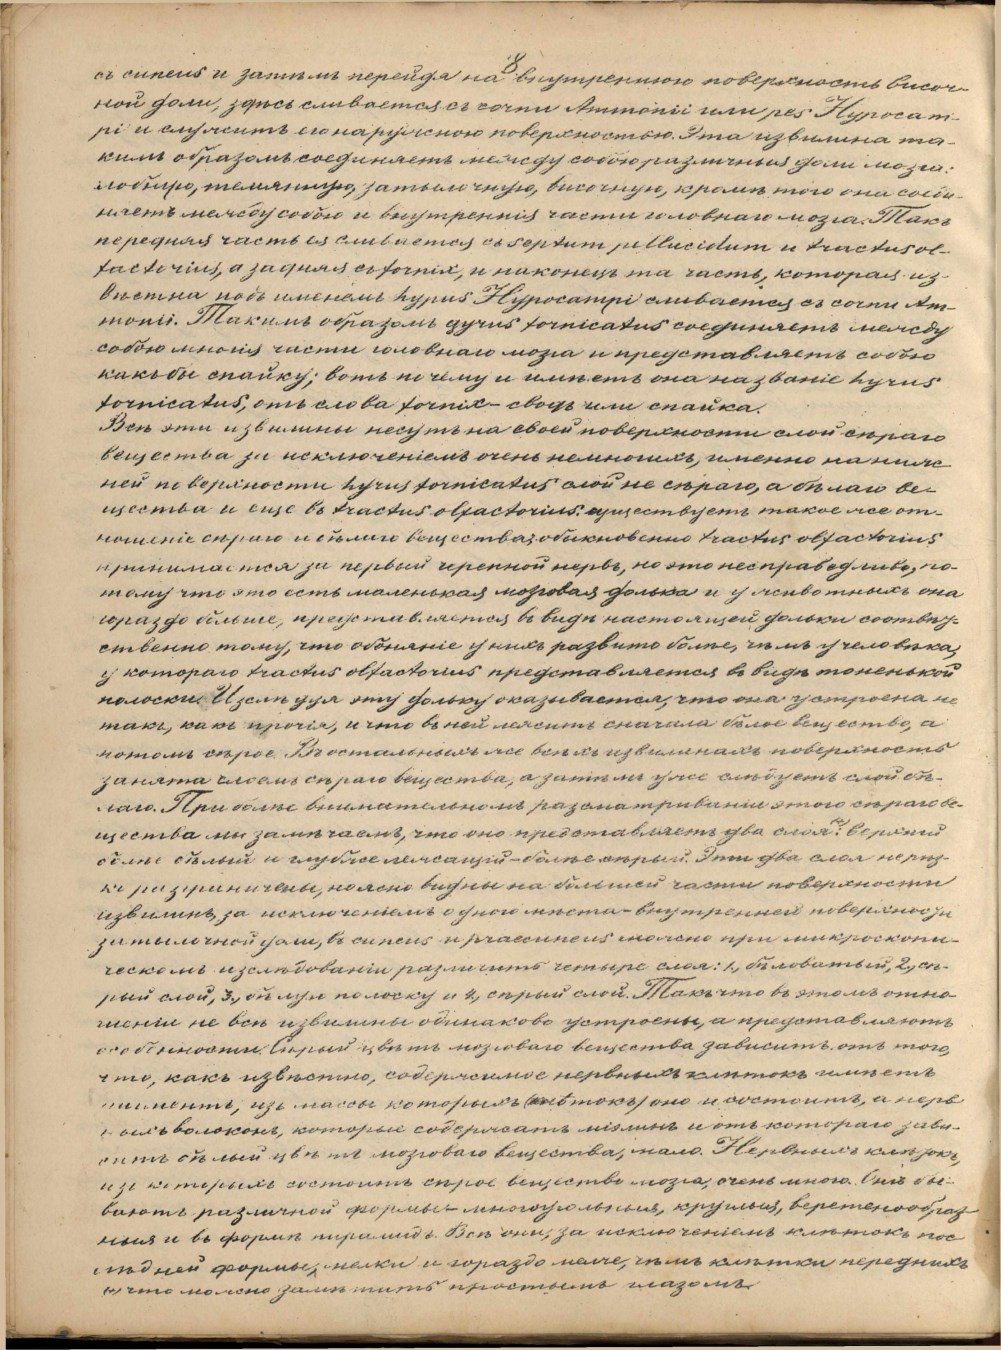 8
съ cuneus и затѣмъ перейдя на внутреннюю поверхность височ-
ной доли, здѣсь сливается съ cornu Ammonii или pes Hypocam-
pi и служитъ его наружною поверхностью. Эта извилина та-
кимъ образомъ соединяетъ между собою различныя доли мозга:
лобную, темянную, затылочную, височную, кромѣ того она соеди-
няетъ между собою и внутреннія части головнаго мозга. Такъ
передняя часть ея сливается съ septum pellucidum и tractus ol-
factorius, а задняя съ fornix, и наконецъ та часть, которая из-
вѣстна подъ именемъ hyrus Hypocampi сливается съ cornu Am-
monii. Такимъ образомъ gyrus fornicatus соединяетъ между
собою многія части головнаго мозга и представляетъ собою
какъ бы спайку; вотъ почему и имѣетъ она названіе hyrus
fornicatus, отъ слова fornix – сводъ или спайка.
Всѣ эти извилины несутъ на своей поверхности слой сѣраго
вещества за исключеніемъ очень немногихъ, именно на ниж-
ней поверхности hyrus fornicatus слой не сѣраго, а бѣлаго ве-
щества и еще въ tractus olfactorius существуетъ такое же от-
ношеніе сѣраго и бѣлаго вещества; обыкновенно tractus olfactorius
принимается за первый черепной нервъ, но это несправедливо, по-
тому что это есть маленькая мозговая долька и у животныхъ она
гораздо больше, представляется въ видѣ настоящей дольки соотвѣт-
ственно тому, что обоняніе у нихъ развито болѣе, чѣмъ у человѣка,
у котораго tractus olfactorius представляется въ видѣ тоненькой
полоски. Изслѣдуя эту дольку оказывается, что она устроена не
такъ, какъ прочія, и что въ ней лежитъ сначала бѣлое вещество, а
потомъ сѣрое. Въ остальныхъ же всѣхъ извилинахъ поверхность
занята слоемъ сѣраго вещества, а затѣмъ уже слѣдуетъ слой бѣ-
лаго. При болѣе внимательномъ разсматриваніи этого сѣраго ве-
щества мы замѣчаемъ, что оно представляетъ два слоя: верхній
болѣе бѣлый и глубже лежащій – болѣе сѣрый. Эти два слоя не рѣз-
ко разграничены, но ясно видны на большей части поверхности
извилинъ, за исключеніемъ одного мѣста – внутренней поверхности
затылочной доли, въ cuneus и praecuneus можно при микроскопи-
ческомъ изслѣдованіи различить четыре слоя: 1, бѣловатый, 2, сѣ-
рый слой, 3, бѣлую полоску и 4, сѣрый слой. Такъ что въ этомъ отно-
шеніи не всѣ извилины одинаково устроены, а представляютъ
особенности. Сѣрый цвѣтъ мозговаго вещества зависитъ отъ того,
что, какъ извѣстно, содержимое нервныхъ клѣтокъ имѣетъ
пигментъ, изъ массы которыхъ (клѣтокъ) оно и состоитъ, а нерв-
ныхъ волоконъ, которые содержатъ міэлинъ и отъ котораго зави-
ситъ бѣлый цвѣтъ мозговаго вещества, мало. Нервныхъ клѣтокъ,
изъ которыхъ состоитъ сѣрое вещество мозга, очень много. Онѣ бы-
ваютъ различной формы – многоугольныя, круглыя, веретенообраз-
ныя и въ формѣ пирамидъ. Всѣ они, за исключеніемъ клѣтокъ пос-
лѣдней формы, мелки и гораздо мельче, чѣмъ клѣтки переднихъ
что можно замѣтить простымъ глазомъ.